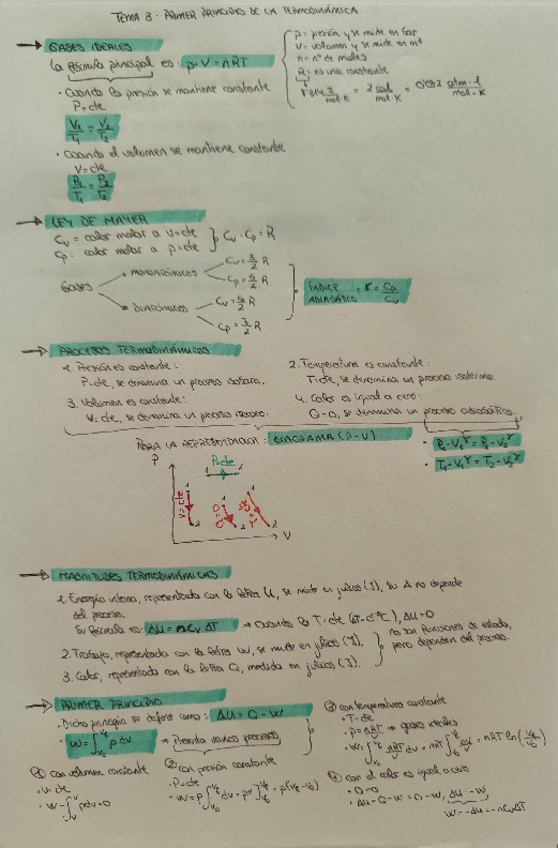 TEMA 3: PRIMER PRINCIPIO DE LA TERMODINÁMICA
GASES IDEALES
La fórmula principal es: p·V = nRT
p = presión y se mide en bar
V = volumen y se mide en m³
n = nº de moles
R = es una constante
8'3143 J/mol·K = 2 cal/mol·K = 0'082 atm·l/mol·K
· Cuando la presión se mantiene constante
P = cte
V₁/T₁ = V₂/T₂
· Cuando el volumen se mantiene constante
V = cte
P₁/T₁ = P₂/T₂
LEY DE MAYER
Cv = calor molar a v = cte
Cp: calor molar a p = cte
Cv - Cp = R
Gases
MONOATÓMICOS
Cv = 3/2 R
Cp = 5/2 R
DIATÓMICOS
Cv = 5/2 R
Cp = 7/2 R
ÍNDICE ADIABÁTICO = γ = Cp/Cv
PROCESOS TERMODINÁMICOS
1. Presión es constante:
P = cte, se denomina un proceso isobaro.
2. Temperatura es constante:
T = cte, se denomina un proceso isotermo.
3. Volumen es constante:
V = cte, se denomina un proceso isocoro.
4. Calor es igual a cero:
Q = 0, se denomina un proceso adiabático.
· P₁·V₁^γ = P₂·V₂^γ
PARA LA REPRESENTACIÓN: DIAGRAMA (P-V)
P
P=cte
1 2
V=cte
1
2
1
2
1
2
V
MAGNITUDES TERMODINÁMICAS
1. Energía interna, representada con la letra U, se mide en julios (J), su Δ no depende
del proceso.
Su fórmula es: ΔU = nCvΔT → Cuando la T = cte, ΔU = 0
2. Trabajo, representada con la letra W, se mide en julios (J).
3. Calor, representada con la letra Q, medida en julios (J).
no son funciones de estado,
pero dependen del proceso.
PRIMER PRINCIPIO
· Dicho principio se define como: ΔU = Q - W
· W = ∫ p dv → Presenta varios procesos
① con volumen constante
· V = cte
· W = ∫ p dv = 0
② con presión constante
· P = cte
· W = p ∫ dv = pv] = p(Vf - V₀)
③ con temperatura constante
· T = cte
· p = nRT/V → gases ideales
· W = ∫ nRT/V dv = nRT ∫ dv/V = nRT ln(Vf/V₀)
④ con el calor es igual a cero
· Q = 0
· ΔU = Q - W = 0 - W, ΔU = -W
W = -ΔU = -nCvΔT